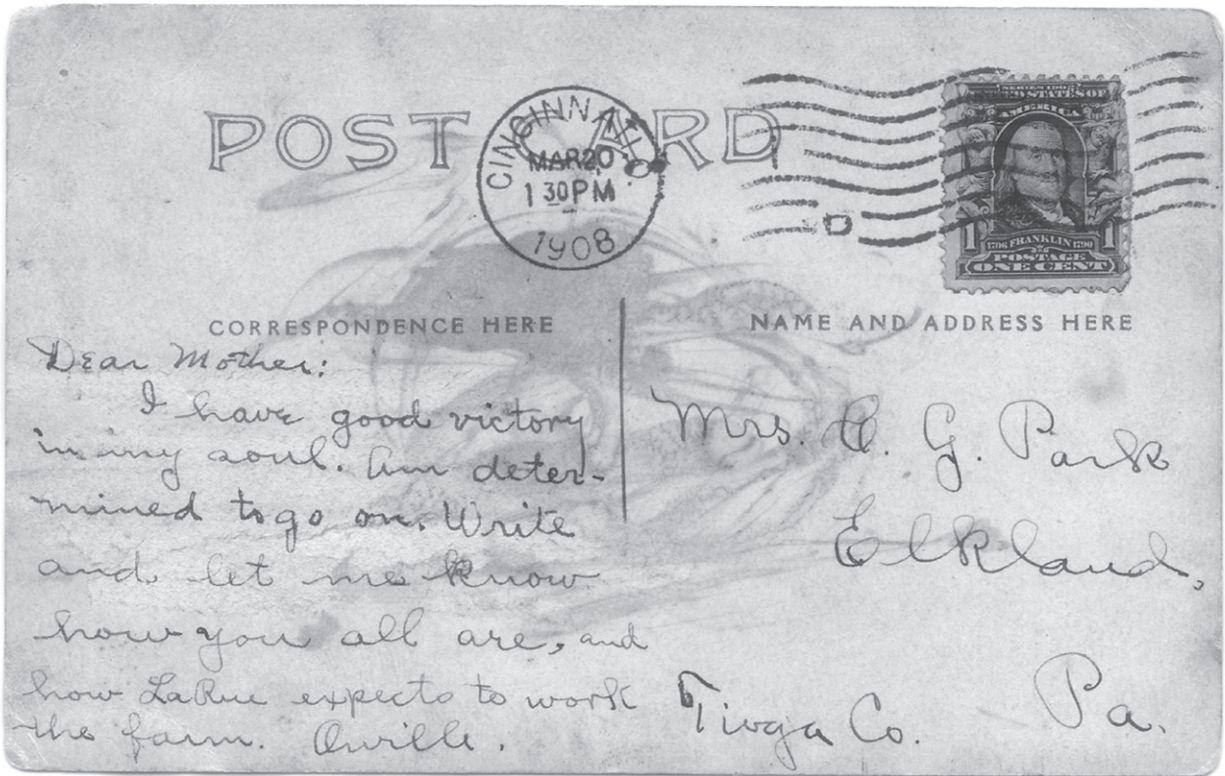 POST CARD
CINCINNATI, O.
MAR 20
1 30 PM
1908
D
SERIES 1902
UNITED STATES OF
AMERICA
1706 FRANKLIN 1790
1 POSTAGE 1
ONE CENT
CORRESPONDENCE HERE
Dear Mother:
I have good victory
in my soul. Am deter-
mined to go on. Write
and let me know
how you all are, and
how LaRue expects to work
the farm. Orville.
NAME AND ADDRESS HERE
Mrs. C. G. Park
Elkland,
Tioga Co. Pa.